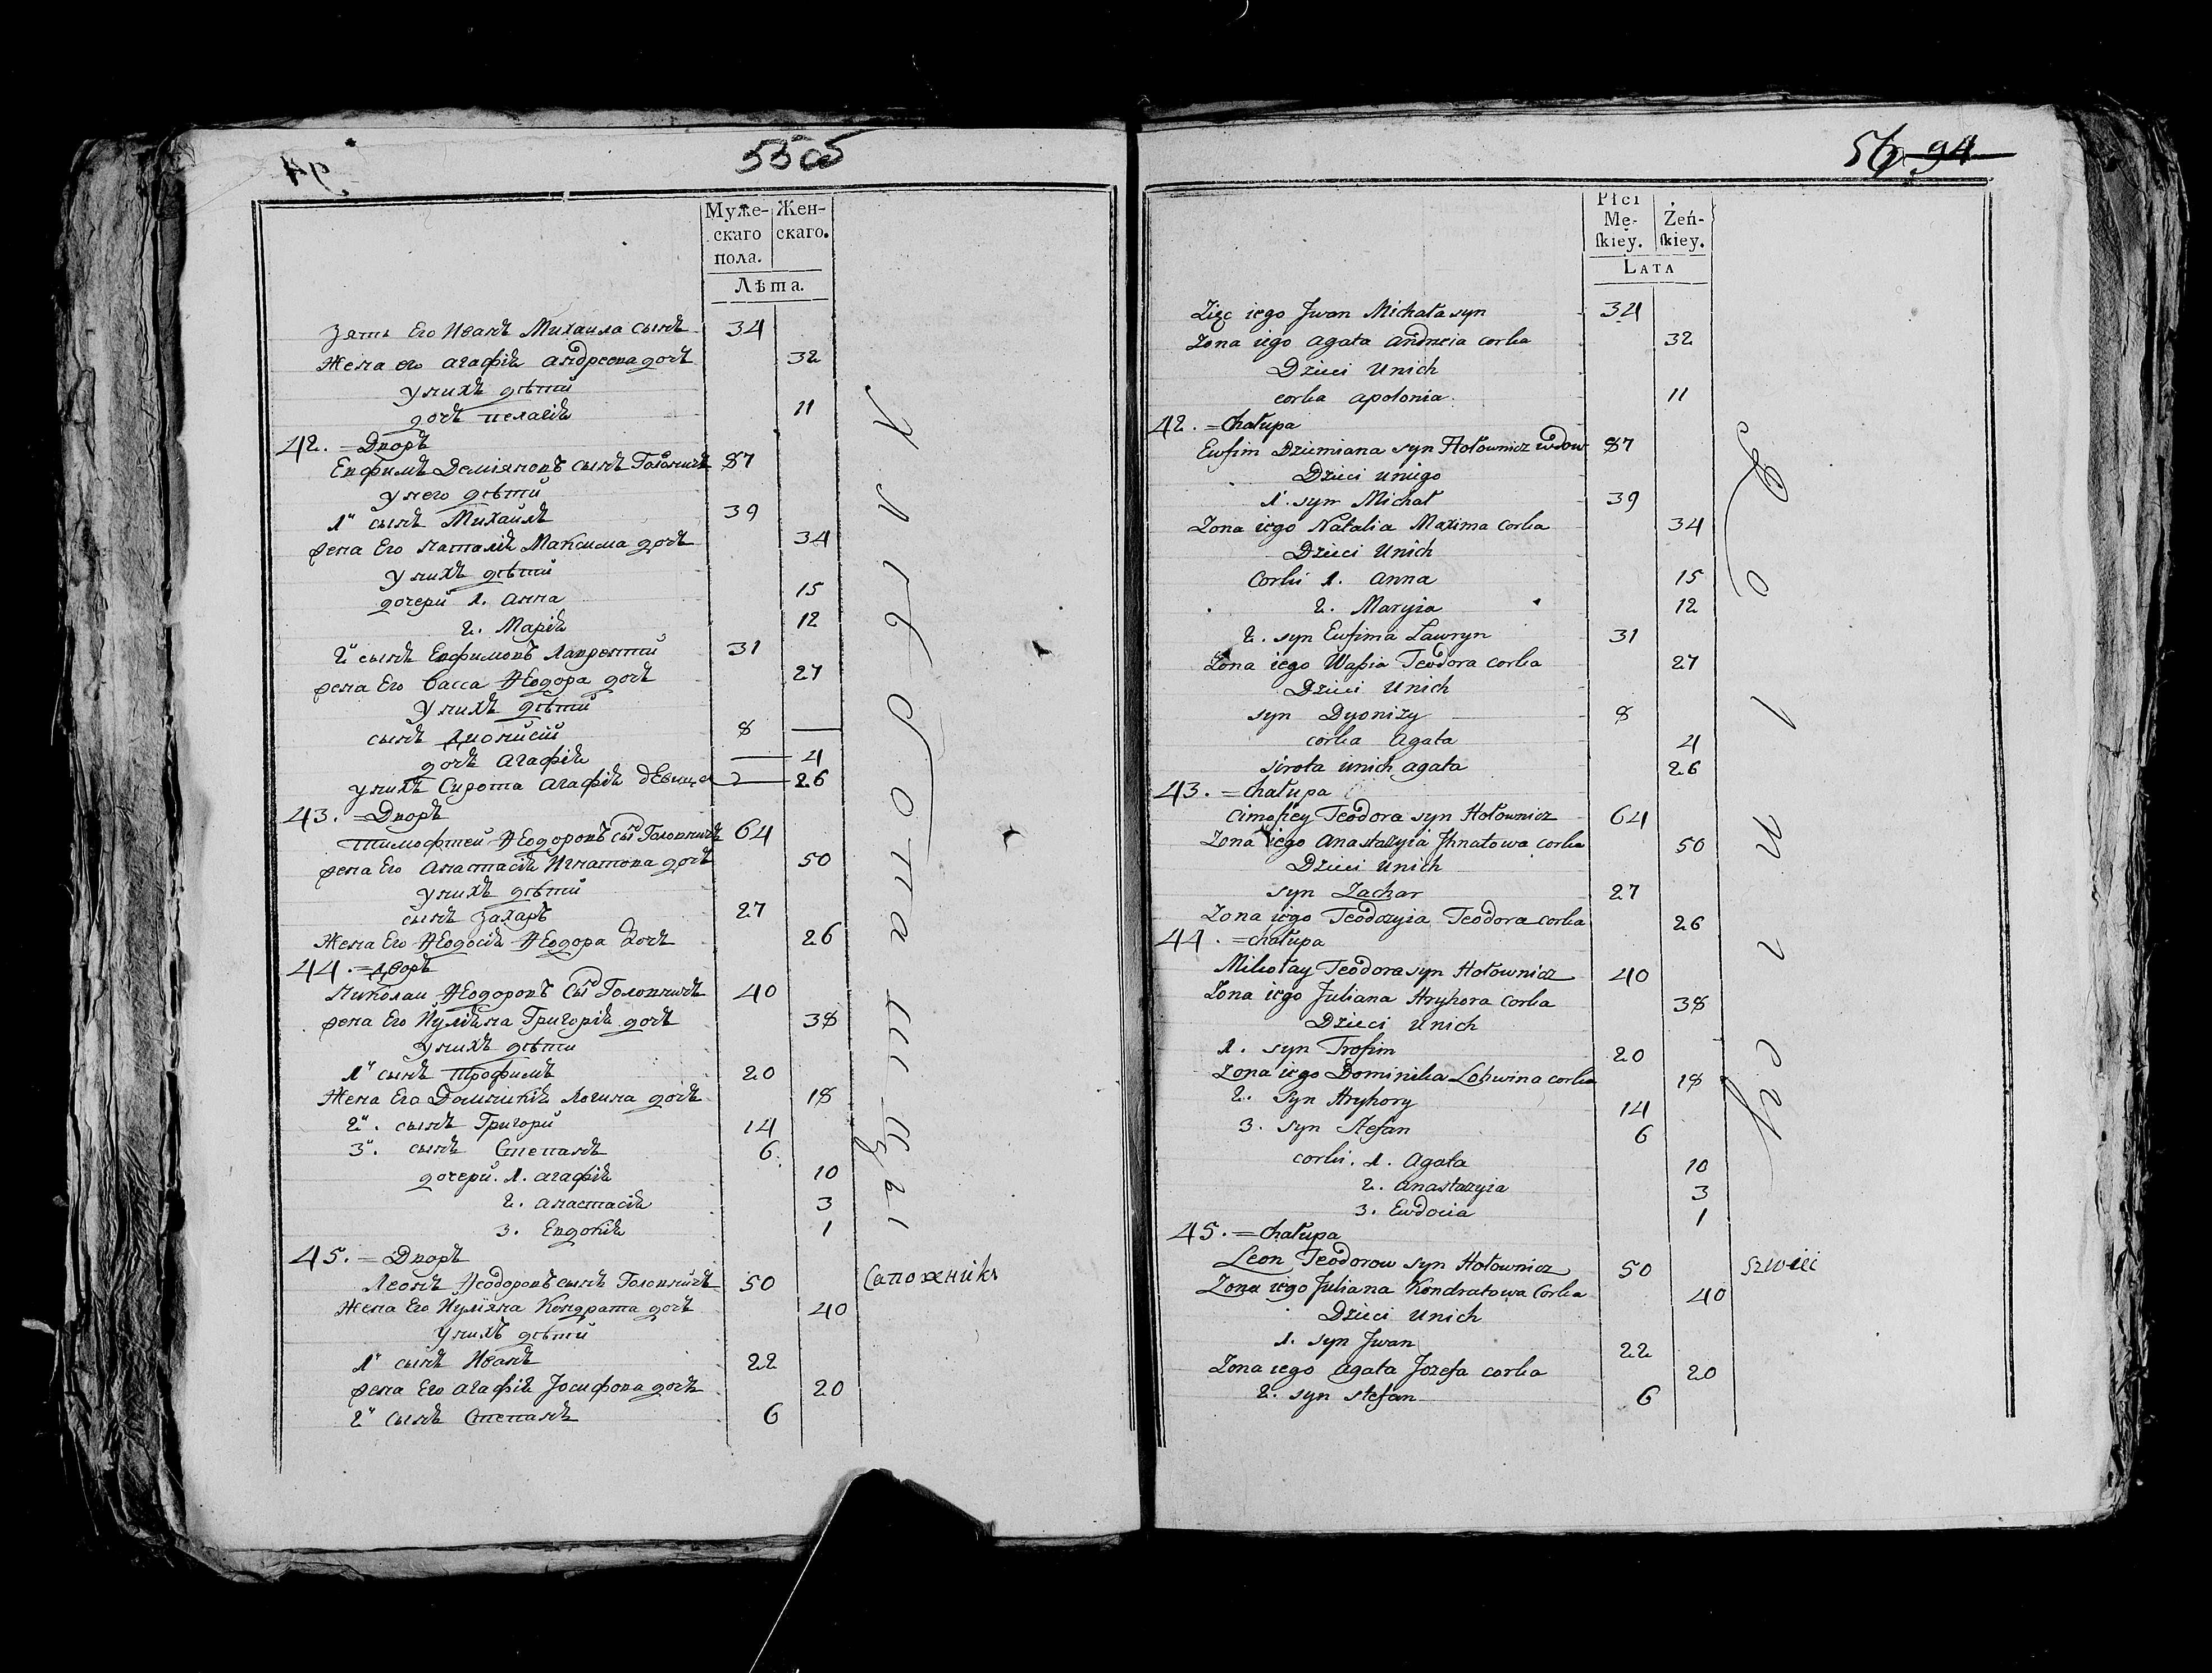 55 об
94
Муже-
скаго
пола.
Жен-
скаго.
Лѣта.
Зять Его Иванъ Михаила сынъ 34
Жена его агафія андреева дочь 32
у нихъ дѣти
дочь пелагія 11
42. = Дворъ
Евфимъ Деміяновъ сынъ Головничь 87
у него дѣти
1й сынъ Михайлъ 39
жена Его наталія Максима дочь 34
у нихъ дѣти
дочери 1. анна 15
2. Марія 12
2й сынъ Евфимовъ Лаврентій 31
жена Его Васса Ѳеодора дочь 27
у нихъ дѣти
сынъ Дионисій 8 —
дочь агафія — 4
у нихъ Сирота агафія дѣвица — 26
43. = Дворъ
тимофтей Ѳеодоровъ сынъ Головничь 64
жена Его Анастасія Игнатова дочь 50
у нихъ дѣти
сынъ Захаръ 27
Жена Его Ѳеодосія Ѳеодора дочь 26
44. = Дворъ
Николаи Ѳеодоровъ сынъ Головничь 40
жена Его Иуліяна Григорія дочь 38
у нихъ дѣти
1й сынъ Трофимъ 20
Жена Его Доминикія Логина дочь 18
2й. сынъ Григори 14
3й. сынъ Степанъ 6
дочери. 1. агафія 10
2. анастасія 3
3. Евдокія 1
45. = Дворъ
Леонъ Ѳеодоровъ сынъ Головничь 50 Сапожникъ
Жена Его Иуліяна Кондрата дочь 40
у нихъ дѣти
1й сынъ Иванъ 22
жена Его агафія Іосифова дочь 20
2й сынъ Степанъ 6
56 94
Płci
Mę-
skiey.
Żeń-
skiey.
Lata
Zięc iego Jwan Michała syn 34
Zona iego agata andreia corka 32
Dzieci Unich
corka apolonia 11
42. = Chałupa
Eufim Dziemiana syn Hołownicz wdow 87
Dzieci uniego
1. syn Michał 39
Zona iego Natalia Maxima Corka 34
Dzieci Unich
Corki 1. anna 15
2. Maryia 12
2. syn Eufima Lawryn 31
Zona iego Waßia Teodora corka 27
Dzieci Unich
syn Dyonizy 8
corka agata 4
sirota unich agata 26
43. = Chałupa
Cimofiey Teodora syn Hołownicz 64
Zona iego anastazyia Jhnatowa corka 50
Dzieci Unich
syn Zachar 27
Zona iego Teodozyia Teodora corka 26
44. = chałupa
Mikołay Teodora syn Hołownicz 40
Zona iego Juliana Hryhora Corka 38
Dzieci Unich
1. syn Trofim 20
Zona iego Dominika Lohwina corka 18
2. Syn Hryhory 14
3. syn Stefan 6
corki. 1. Agata 10
2. anastazyia 3
3. Eudocia 1
45. = Chałupa
Leon Teodorow syn Hołownicz 50 szwiec
Zona iego Juliana Kondratowa Corka 40
Dzieci Unich
1. syn Jwan 22
Zona iego agata Jozefa corka 20
2. syn stefan 6